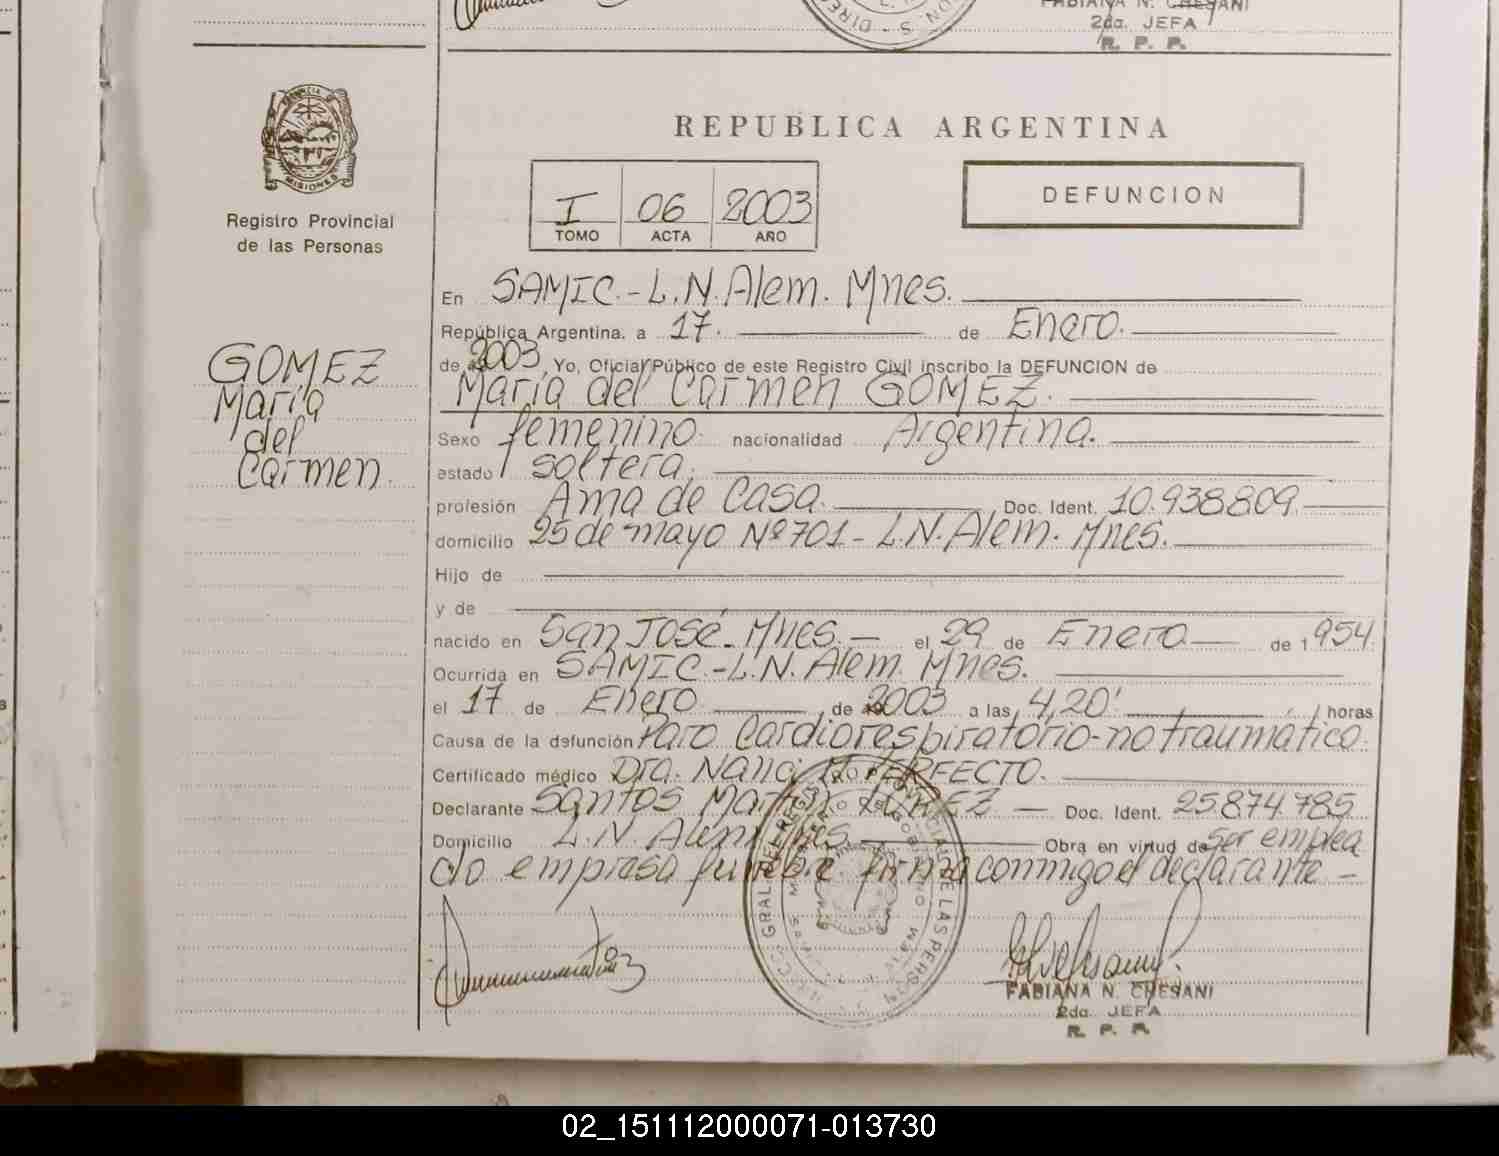 FABIANA N. CHESANI
2da. JEFA
R. P. P.
REPUBLICA ARGENTINA
I 06 2003
TOMO ACTA AÑO
DEFUNCION
MISIONES
Registro Provincial
de las Personas
GOMEZ
María
del
Carmen
En SAMIC.-L.N.Alem. Mnes.
República Argentina, a 17. de Enero.
de 2003, Yo, Oficial Público de este Registro Civil inscribo la DEFUNCION de
María del Carmen GOMEZ.
Sexo femenino nacionalidad Argentina.
estado soltera.
profesión Ama de Casa. Doc. Ident. 10.938.809.
domicilio 25 de mayo Nº 701 - L.N. Alem. Mnes.
Hijo de
y de
nacido en San José. Mnes. — el 29 de Enero — de 1954.
Ocurrida en SAMIC.-L.N. Alem. Mnes.
el 17 de Enero de 2003 a las 4,20' horas
Causa de la defunción Paro Cardiorespiratorio-no traumático.
Certificado médico Dra. Nanci PERFECTO.
Declarante Santos Martín — Doc. Ident. 25.874.785
Domicilio L.N. Alem Mnes Obra en virtud de Ser emplea
do empresa fúnebre firma conmigo el declarante —
FABIANA N. CHESANI
2da. JEFA
R. P. P.
02_151112000071-013730